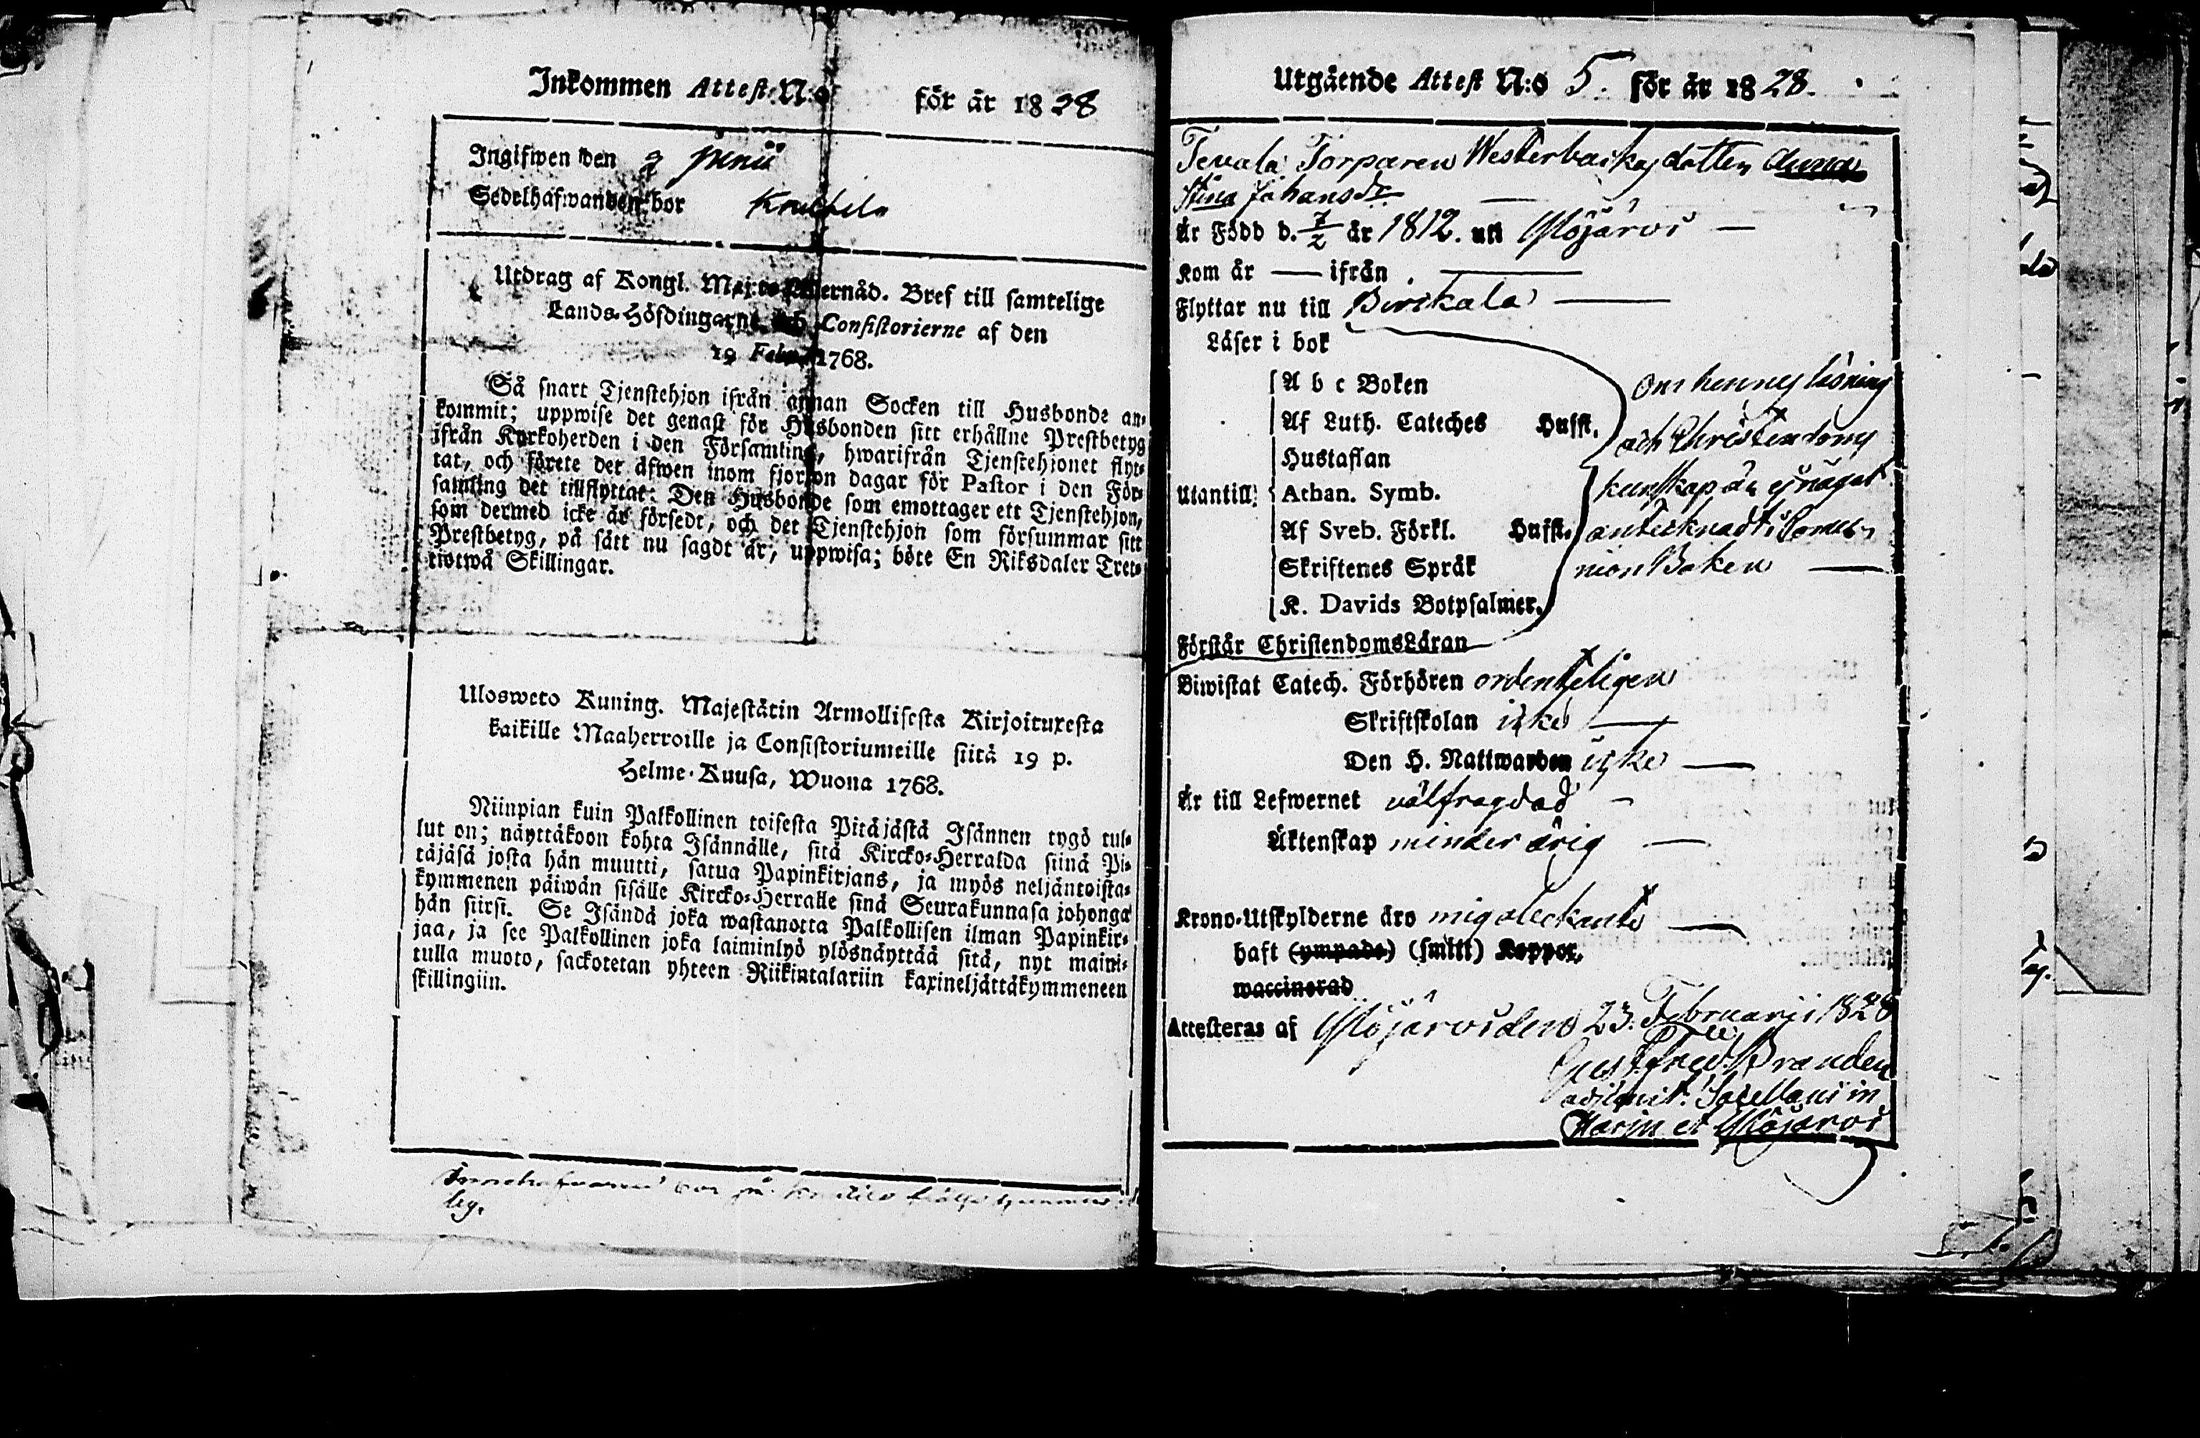 Inkommen Attest N:o för år 1828
Ingifwen den 9 junii
Sedelhafwanden bor
Utdrag af Kongl. Maj:ts Bref till samtelige
Lands-Höfdingarne och Consistorierne af den
19 Febr. 1768.
Så snart Tjenstehjon ifrån annan Socken till Husbonde an-
kommit; uppwise det genast för Husbonden sitt erhållne Prestbetyg
ifrån Kyrkoherden i den Församling, hwarifrån Tjenstehjonet flyt-
tat, och förete det äfwen inom fjorton dagar för Pastor i den För-
samling det tillflyttat: Den Husbonde som emottager ett Tjenstehjon,
som dermed icke är försedt, och det Tjenstehjon som försummar sitt
Prestbetyg, på sätt nu sagdt är, uppwisa; böte En Riksdaler Tret-
tiotwå Skillingar.
Ulosweto Kuning. Majestätin Armollisesta Kirjoituxesta
kaikille Maaherroille ja Consistoriumeille siitä 19 p.
Helme-Kuusa, Wuona 1768.
Niinpian kuin Palkollinen toisesta Pitäjästä Isännen tygö tul-
lut on; näyttäkoon kohta Isännälle, sitä Kircko-Herralda siinä Pi-
täjäsä josta hän muutti, saatua Papinkirjans, ja myös neljäntoista-
kymmenen päiwän sisälle Kircko-Herralle sinä Seurakunnasa johonga
hän siirsi. Se Isändä joka wastanotta Palkollisen ilman Papinkir-
jaa, ja see Palkollinen joka laiminlyö ylösnäyttää sitä, nyt maini-
tulla muoto, sackotetan yhteen Riikintalariin kaxineljättäkymmeneen
skillingiin.
Utgående Attest N:o 5. för år 1828.
Tevala Torparen Westerbackas dotter Anna
Stina Johansdr
Är Född d. 7/2 år 1812. uti Ylöjärvi
Kom år — ifrån
Flyttar nu till Birkala
Läser i bok
A b c Boken
Af Luth. Cateches Huffl.
Hustaflan
Utantill: Athan. Symb.
Af Sveb. Förkl. Huffl.
Skriftenes Språk
K. Davids Botpsalmer.
Om hennes läsning
och Christendoms
kunskap är ej något
antecknadt i Commu-
nion Boken
Förstår Christendoms Läran
Biwistat Catech. Förhören ordenteligen
Skriftskolan icke
Den H. Nattwarden icke
Är till Lefwernet välfrägdad
Äktenskap minderårig
Krono-Utskylderne äro mig obekante
haft (ympade) (smitt) Koppor.
waccinerad
Attesteras af Ylöjärvi den 23. Februarii 1828
Gust. Fred. Brander
adjunct. Sacellani in
Harju et Ylöjärvi